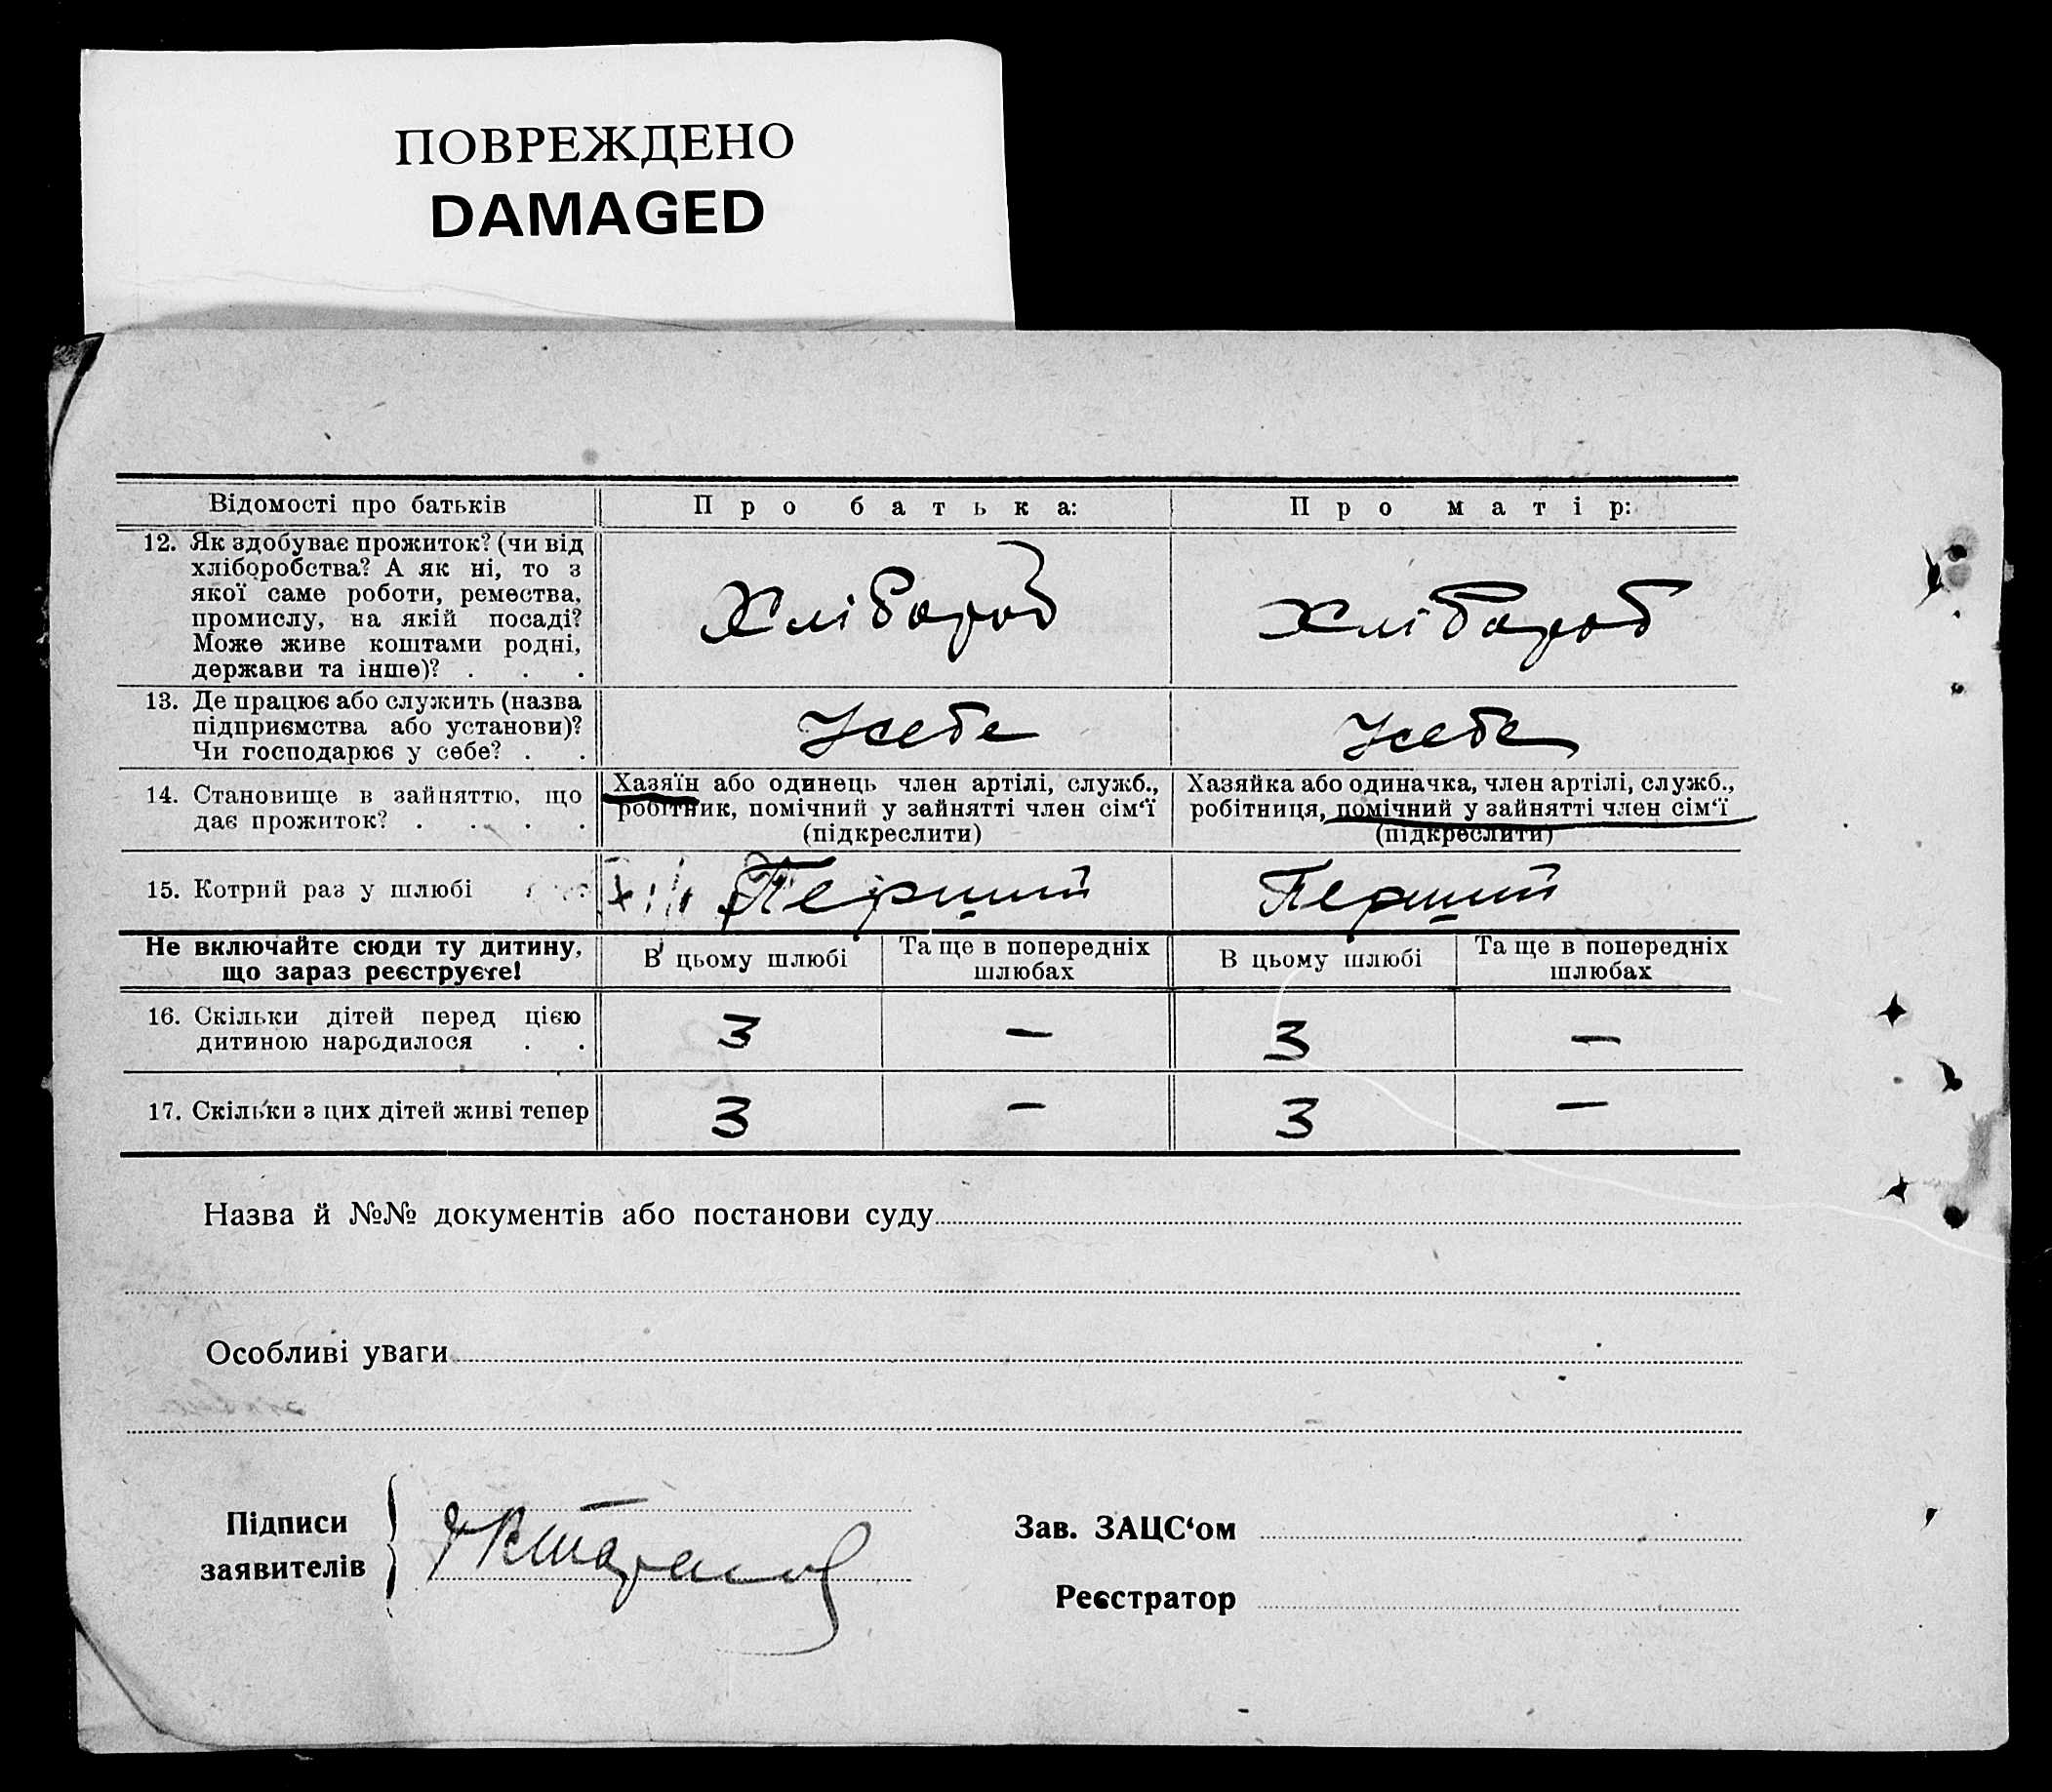 ПОВРЕЖДЕНО
DAMAGED
Відомості про батьків
Про батька:
Про матір:
12. Як здобуває прожиток? (чи від
хліборобства? А як ні, то з
якої саме роботи, ремества,
промислу, на якій посаді?
Може живе коштами родні,
держави та інше)? . . .
Хлібороб
Хлібороб
13. Де працює або служить (назва
підприємства або установи)?
Чи господарює у себе? . .
У себе
У себе
14. Становище в зайняттю, що
дає прожиток? . . . .
Хазяїн або одинець член артілі, служб.,
робітник, помічний у зайнятті член сім‘ї
(підкреслити)
Хазяйка або одиначка, член артілі, служб.,
робітниця, помічний у зайнятті член сім‘ї
(підкреслити)
15. Котрий раз у шлюбі
Перший
Перший
Не включайте сюди ту дитину,
що зараз реєструєте!
В цьому шлюбі
Та ще в попередніх
шлюбах
В цьому шлюбі
Та ще в попередніх
шлюбах
16. Скільки дітей перед цією
дитиною народилося . .
3
—
3
—
17. Скільки з цих дітей живі тепер
3
—
3
—
Назва й №№ документів або постанови суду
Особливі уваги
Підписи
заявителів
Зав. ЗАЦС‘ом
Реєстратор